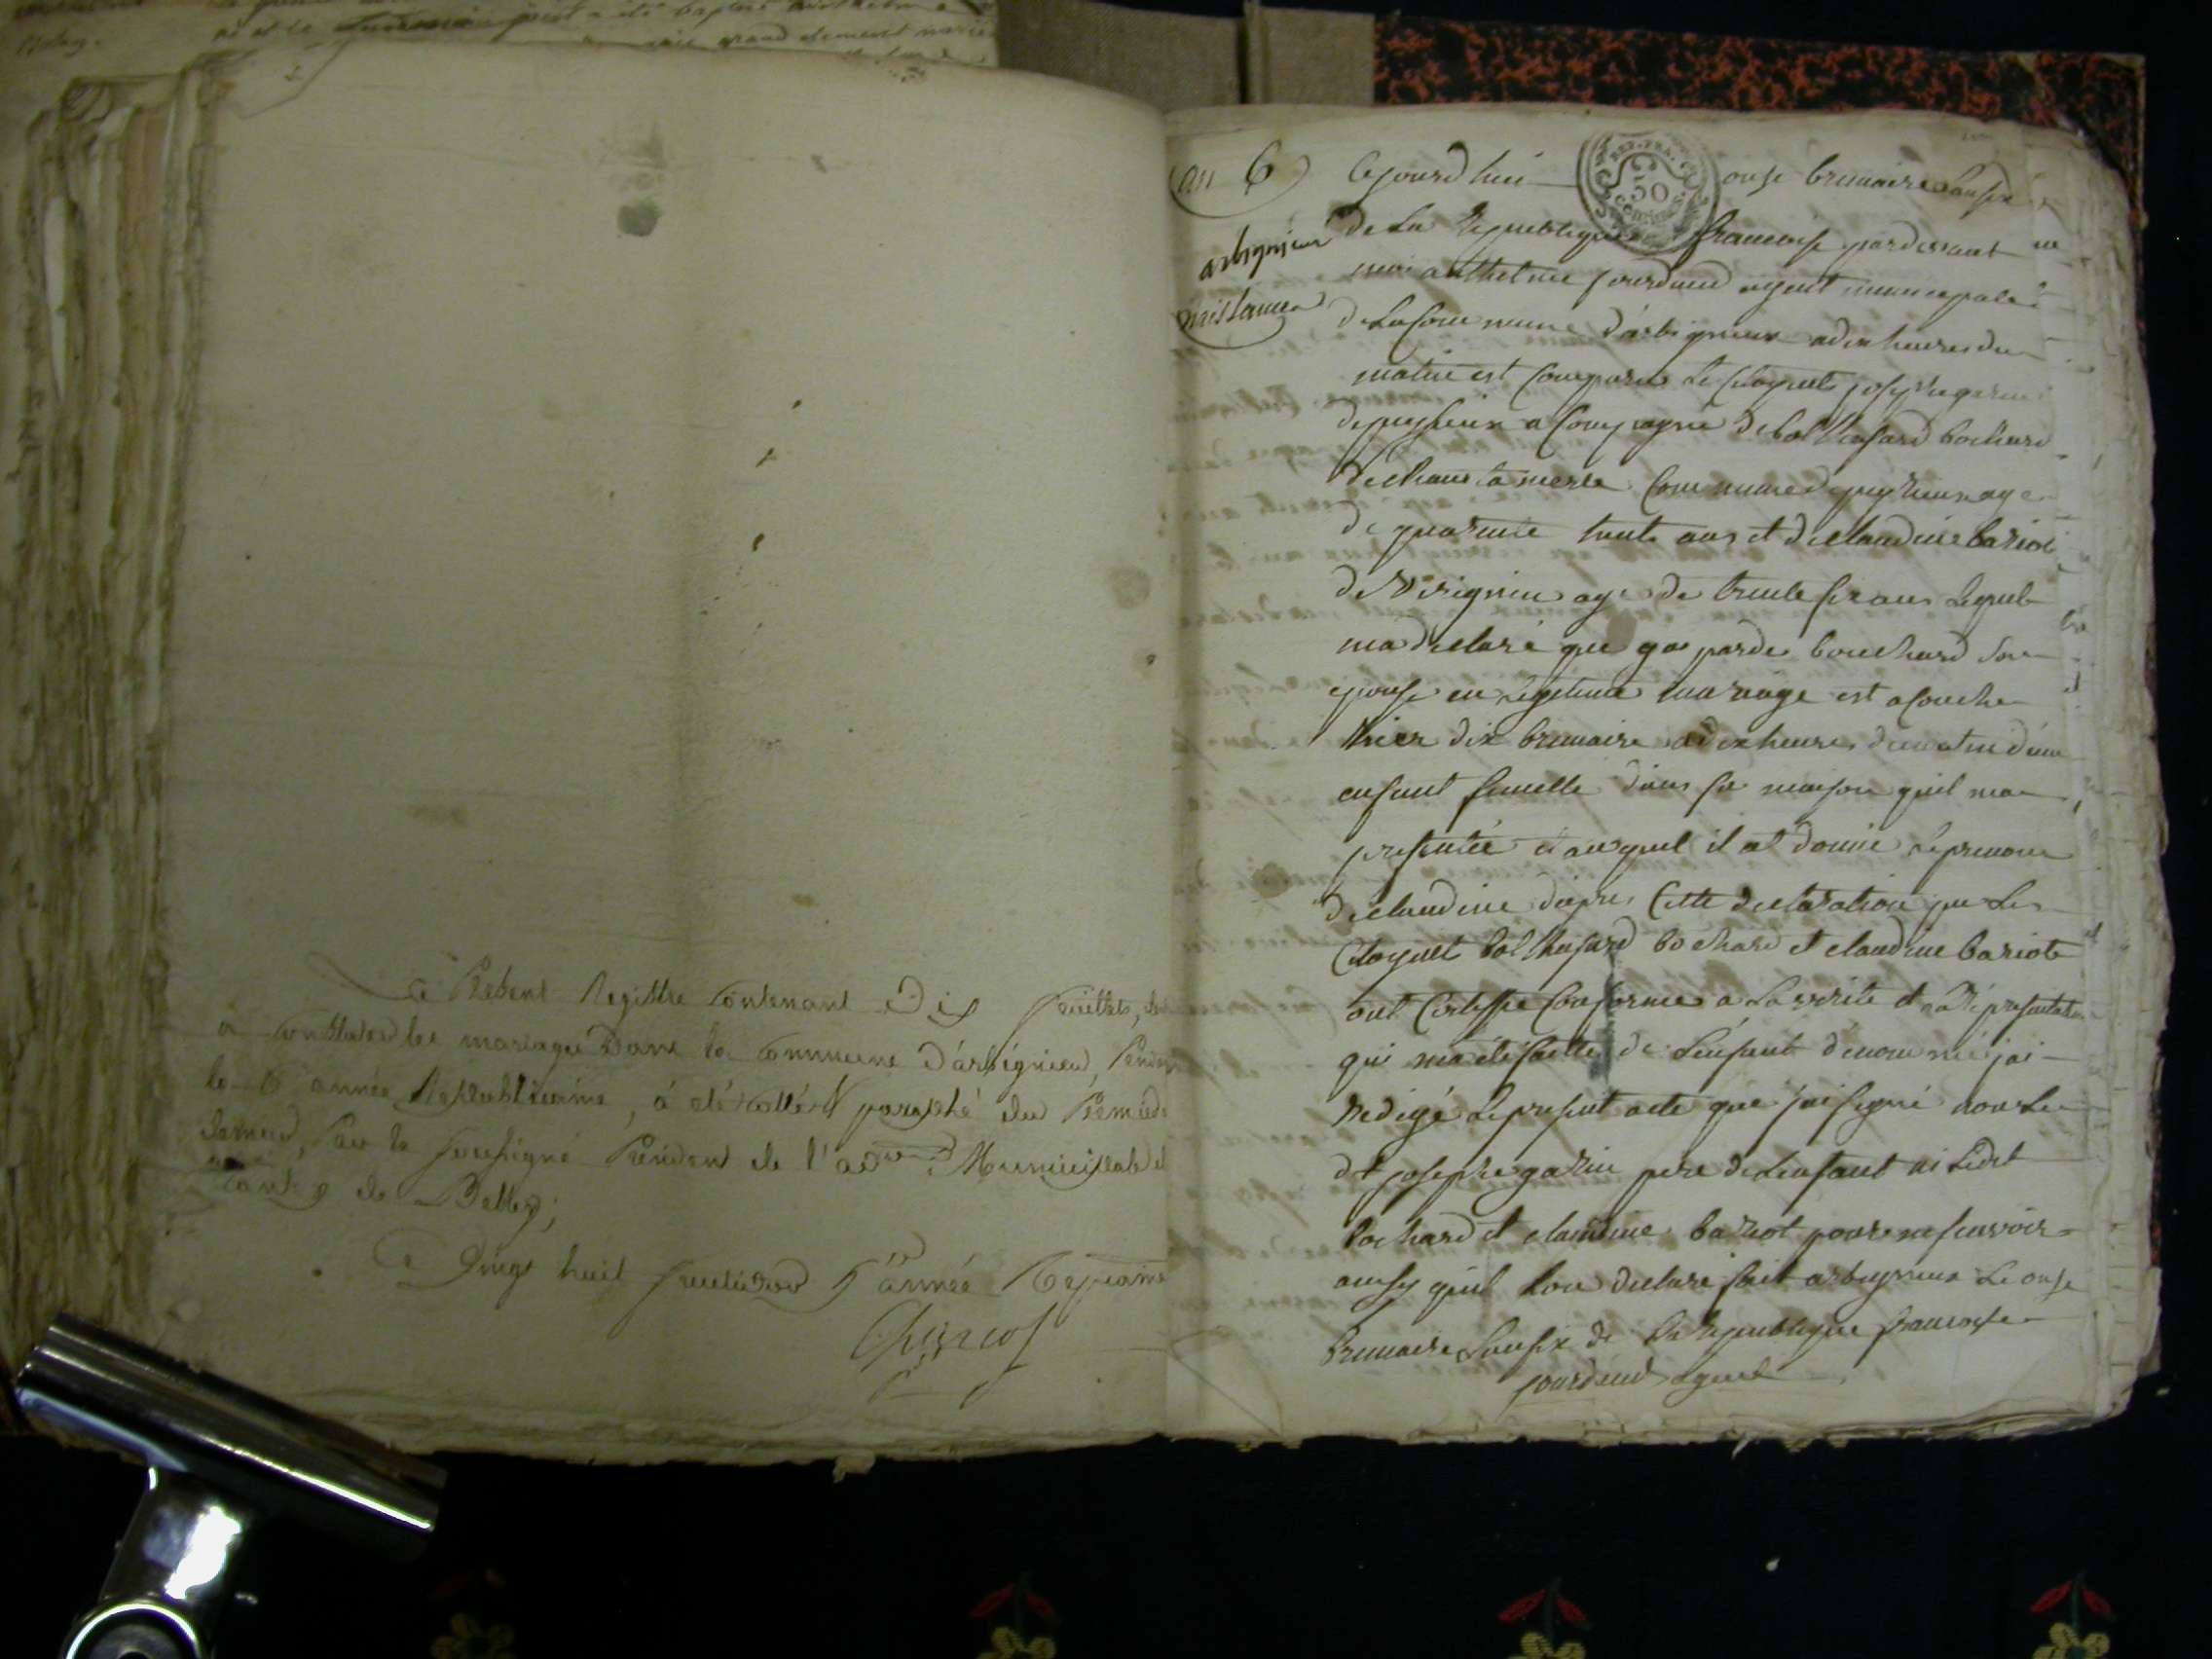 Le Present Registre Contenant Dix feuillets,
a Constater les mariages Dans la Commune D'arbignieu,
la 6e année Republicaine, à été cotté et paraphé du Premier
dernier, Par le soussigné President de l'adon Municipale
canton de Belley;
Ce Vingt huit fructidor 5e année
an 6
arbignieu
naissance
Cejourd'hui onse brumaire lansix
REP. FRA.
50
CENTIMES
de La Republique francoise pardevant
moi anthelme jourdand agent municipale
de La Commune d'arbignieux a dix heures du
matin est Comparu Le Citoyent josephe garin
de peyzieux a Compagnie de balthasard bochard
de Commune de peyzieux age
de quarente huit ans et de claudine bariot
de Virignin age de trente six ans Lequel
ma declaré que gasparde bouchard son
epouse en Legitime mariage est acouche
hier dix brumaire a dix heures du matin d'un
enfant femelle dans sa maison quil ma
presentée et auquel il at donné Le prenom
de claudine diapres Cette declaration que Les
Citoyent balthasard bochard et claudine bariote
ont Certiffie Conforme a La verité et la Representation
qui ma été faitte de L'enfant denommé jai
Redigé Le present acte que j'ai signé non Le
dt josephe garin pere de L'enfant ni Ledit
bochard et claudine bariot pour ne savoir
ainsy quil lon declare fait arbignieux Le onse
brumaire Lansix de La republique francoise
jourdand agent